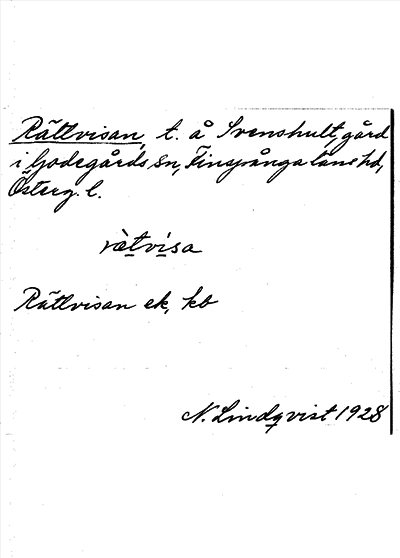 Rättvisan, t. å Svenshult, gård
i Godegårds sn, Finspånga läns hd,
Österg. l.
rätvisa
Rättvisan ek, kb
N. Lindqvist 1928